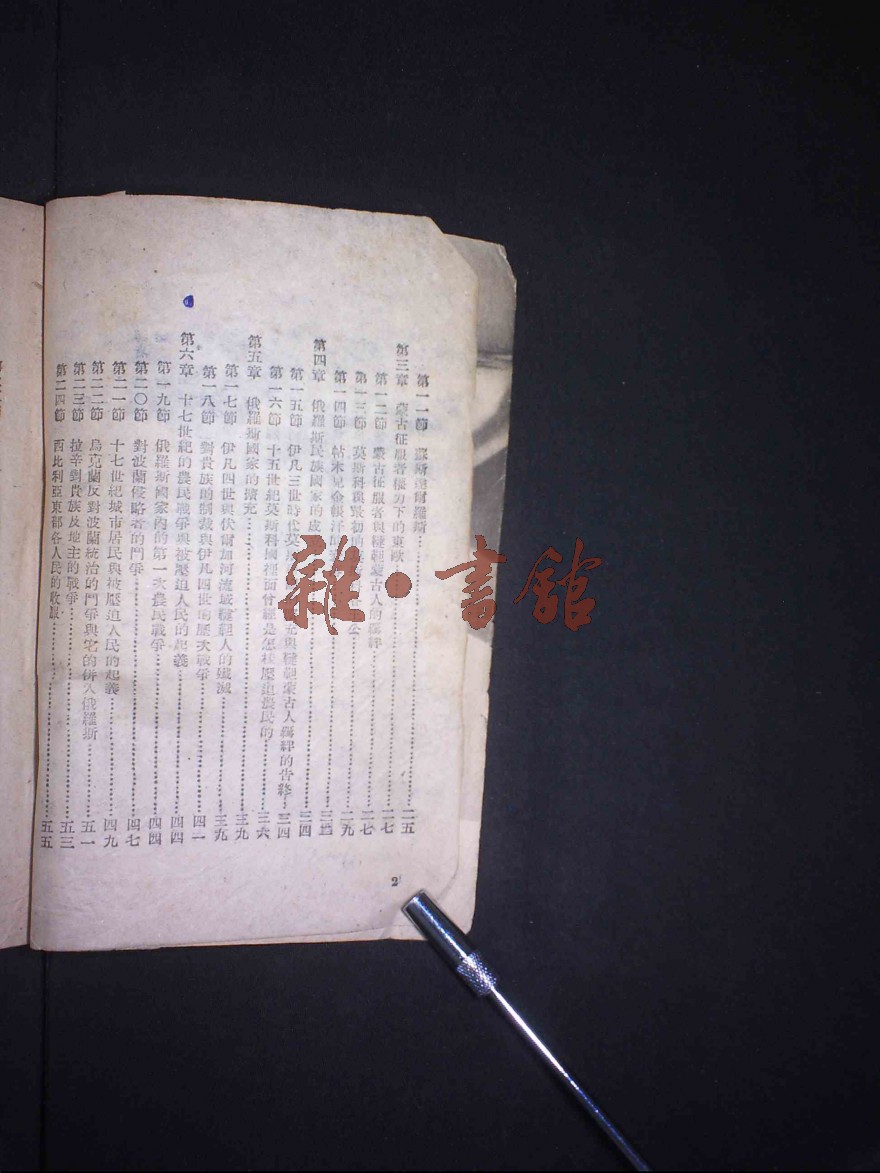 第一一節 蘇斯達爾羅斯
第三章 蒙古征服者權力下的東歐 二五
第一二節 蒙古征服者與韃靼蒙古人的羈絆 二七
第一三節 莫斯科與最初的 公 二七
第一四節 帖木兒金帳汗 二九
第四章 俄羅斯民族國家的成
第一五節 伊凡三世時代莫 充與韃靼蒙古人羈絆的告終 三四
第一六節 十五世紀莫斯科國裡面曾經是怎樣壓迫農民的 三六
第五章 俄羅斯國家的擴充 三九
第一七節 伊凡四世與伏爾加河流域韃靼人的殲滅 三九
第一八節 對貴族的制裁與伊凡四世的歷次戰爭 四一
第六章 十七世紀的農民戰爭與被壓迫人民的起義 四四
第一九節 俄羅斯國家內的第一次農民戰爭 四四
第二〇節 對波蘭侵略者的鬥爭 四七
第二一節 十七世紀城市居民與被壓迫人民的起義 四九
第二二節 烏克蘭反對波蘭統治的鬥爭與它的併入俄羅斯 五一
第二三節 拉辛對貴族及地主的戰爭 五三
第二四節 西比利亞東部各人民的收服 五五
2
雜·書館